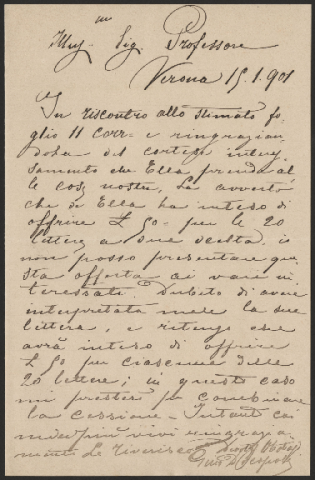 Illus.mo Sig. Professore
Verona 15.1.901
In riscontro allo stimato fo
glio 11 corr. e ringrazian
dola del cortese interes
samento che Ella prende al
le cose nostre, La avverto
che se Ella ha inteso di
offrire £ 50 - per le 20
lettere a sua scelta, io
non posso presentare que
sta offerta ai vari in
teressati. Dubito di avere
interpretata male la sua
lettera, e ritengo che
avrà inteso di offrire
£ 50 per ciascuna delle
20 lettere; in questo caso
mi presterò per combinare
la cessione - Intanto coi
miei più vivi ringrazia
menti La riverisco